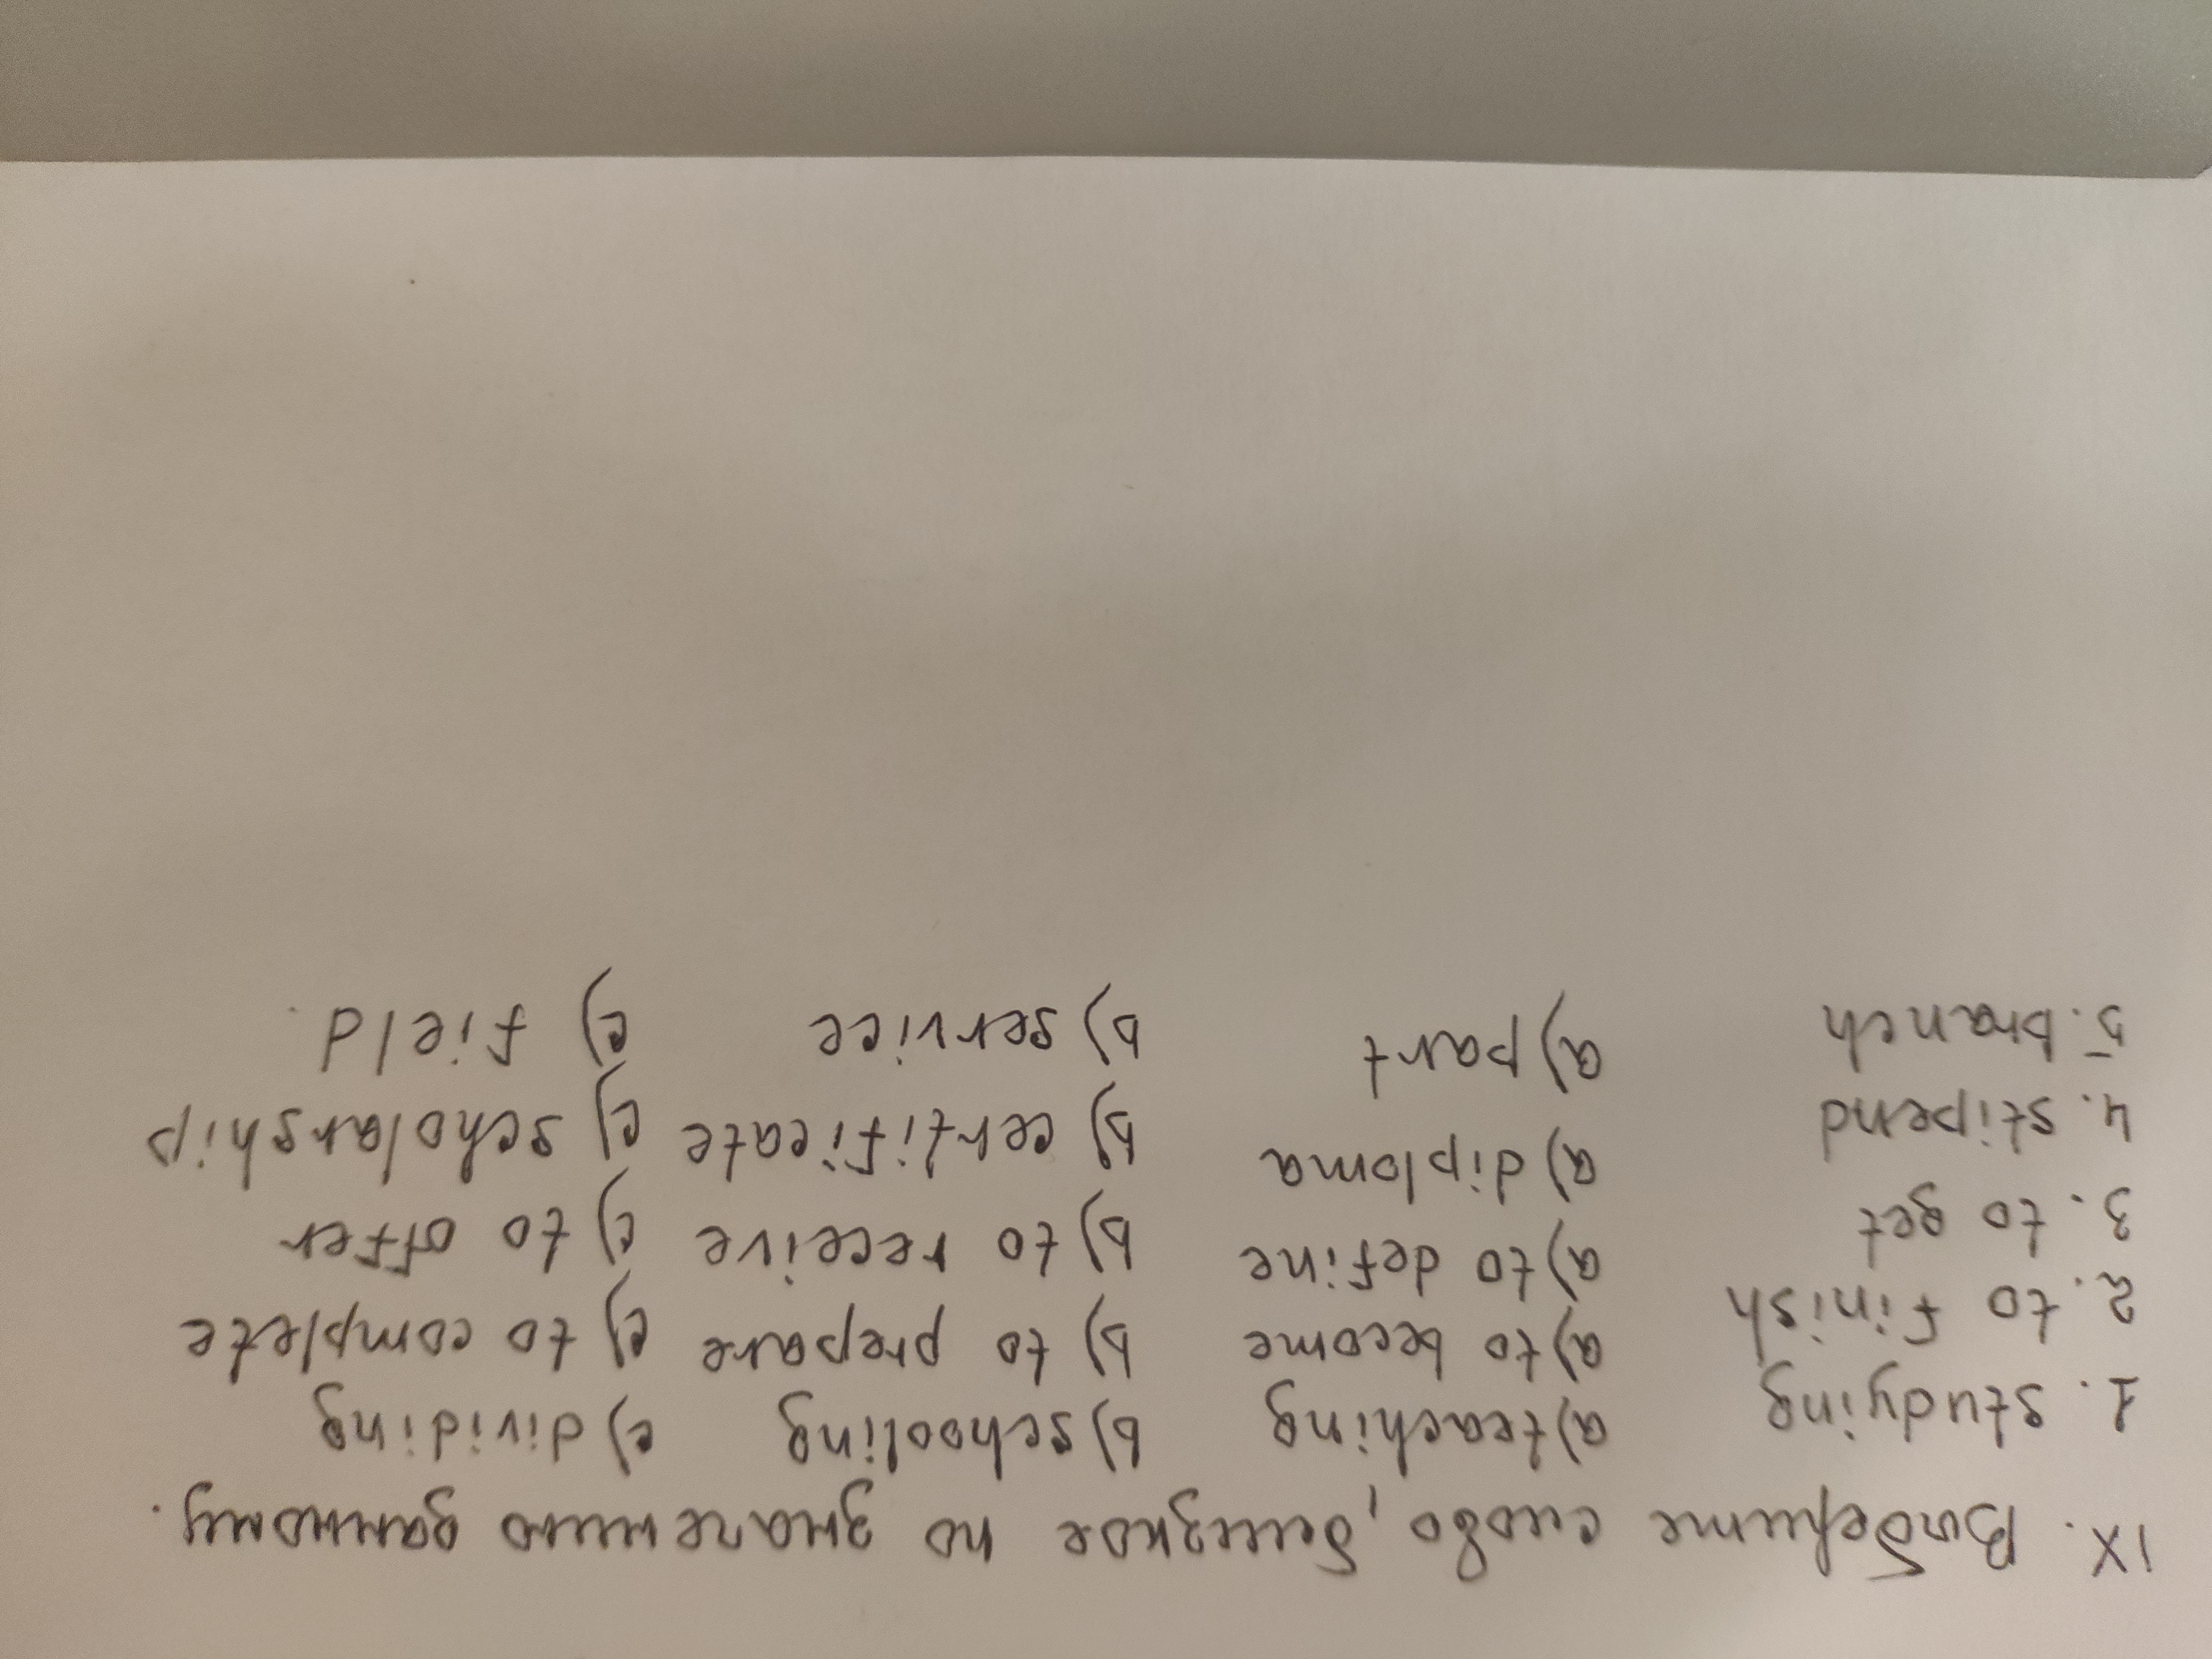 IX. Выберите слово, близкое по значению данному.
1. studying a) teaching b) schooling c) dividing
2. to finish a) to become b) to prepare c) to complete
3. to get a) to define b) to receive c) to offer
4. stipend a) diploma b) certificate c) scholarship
5. branch a) part b) service c) field